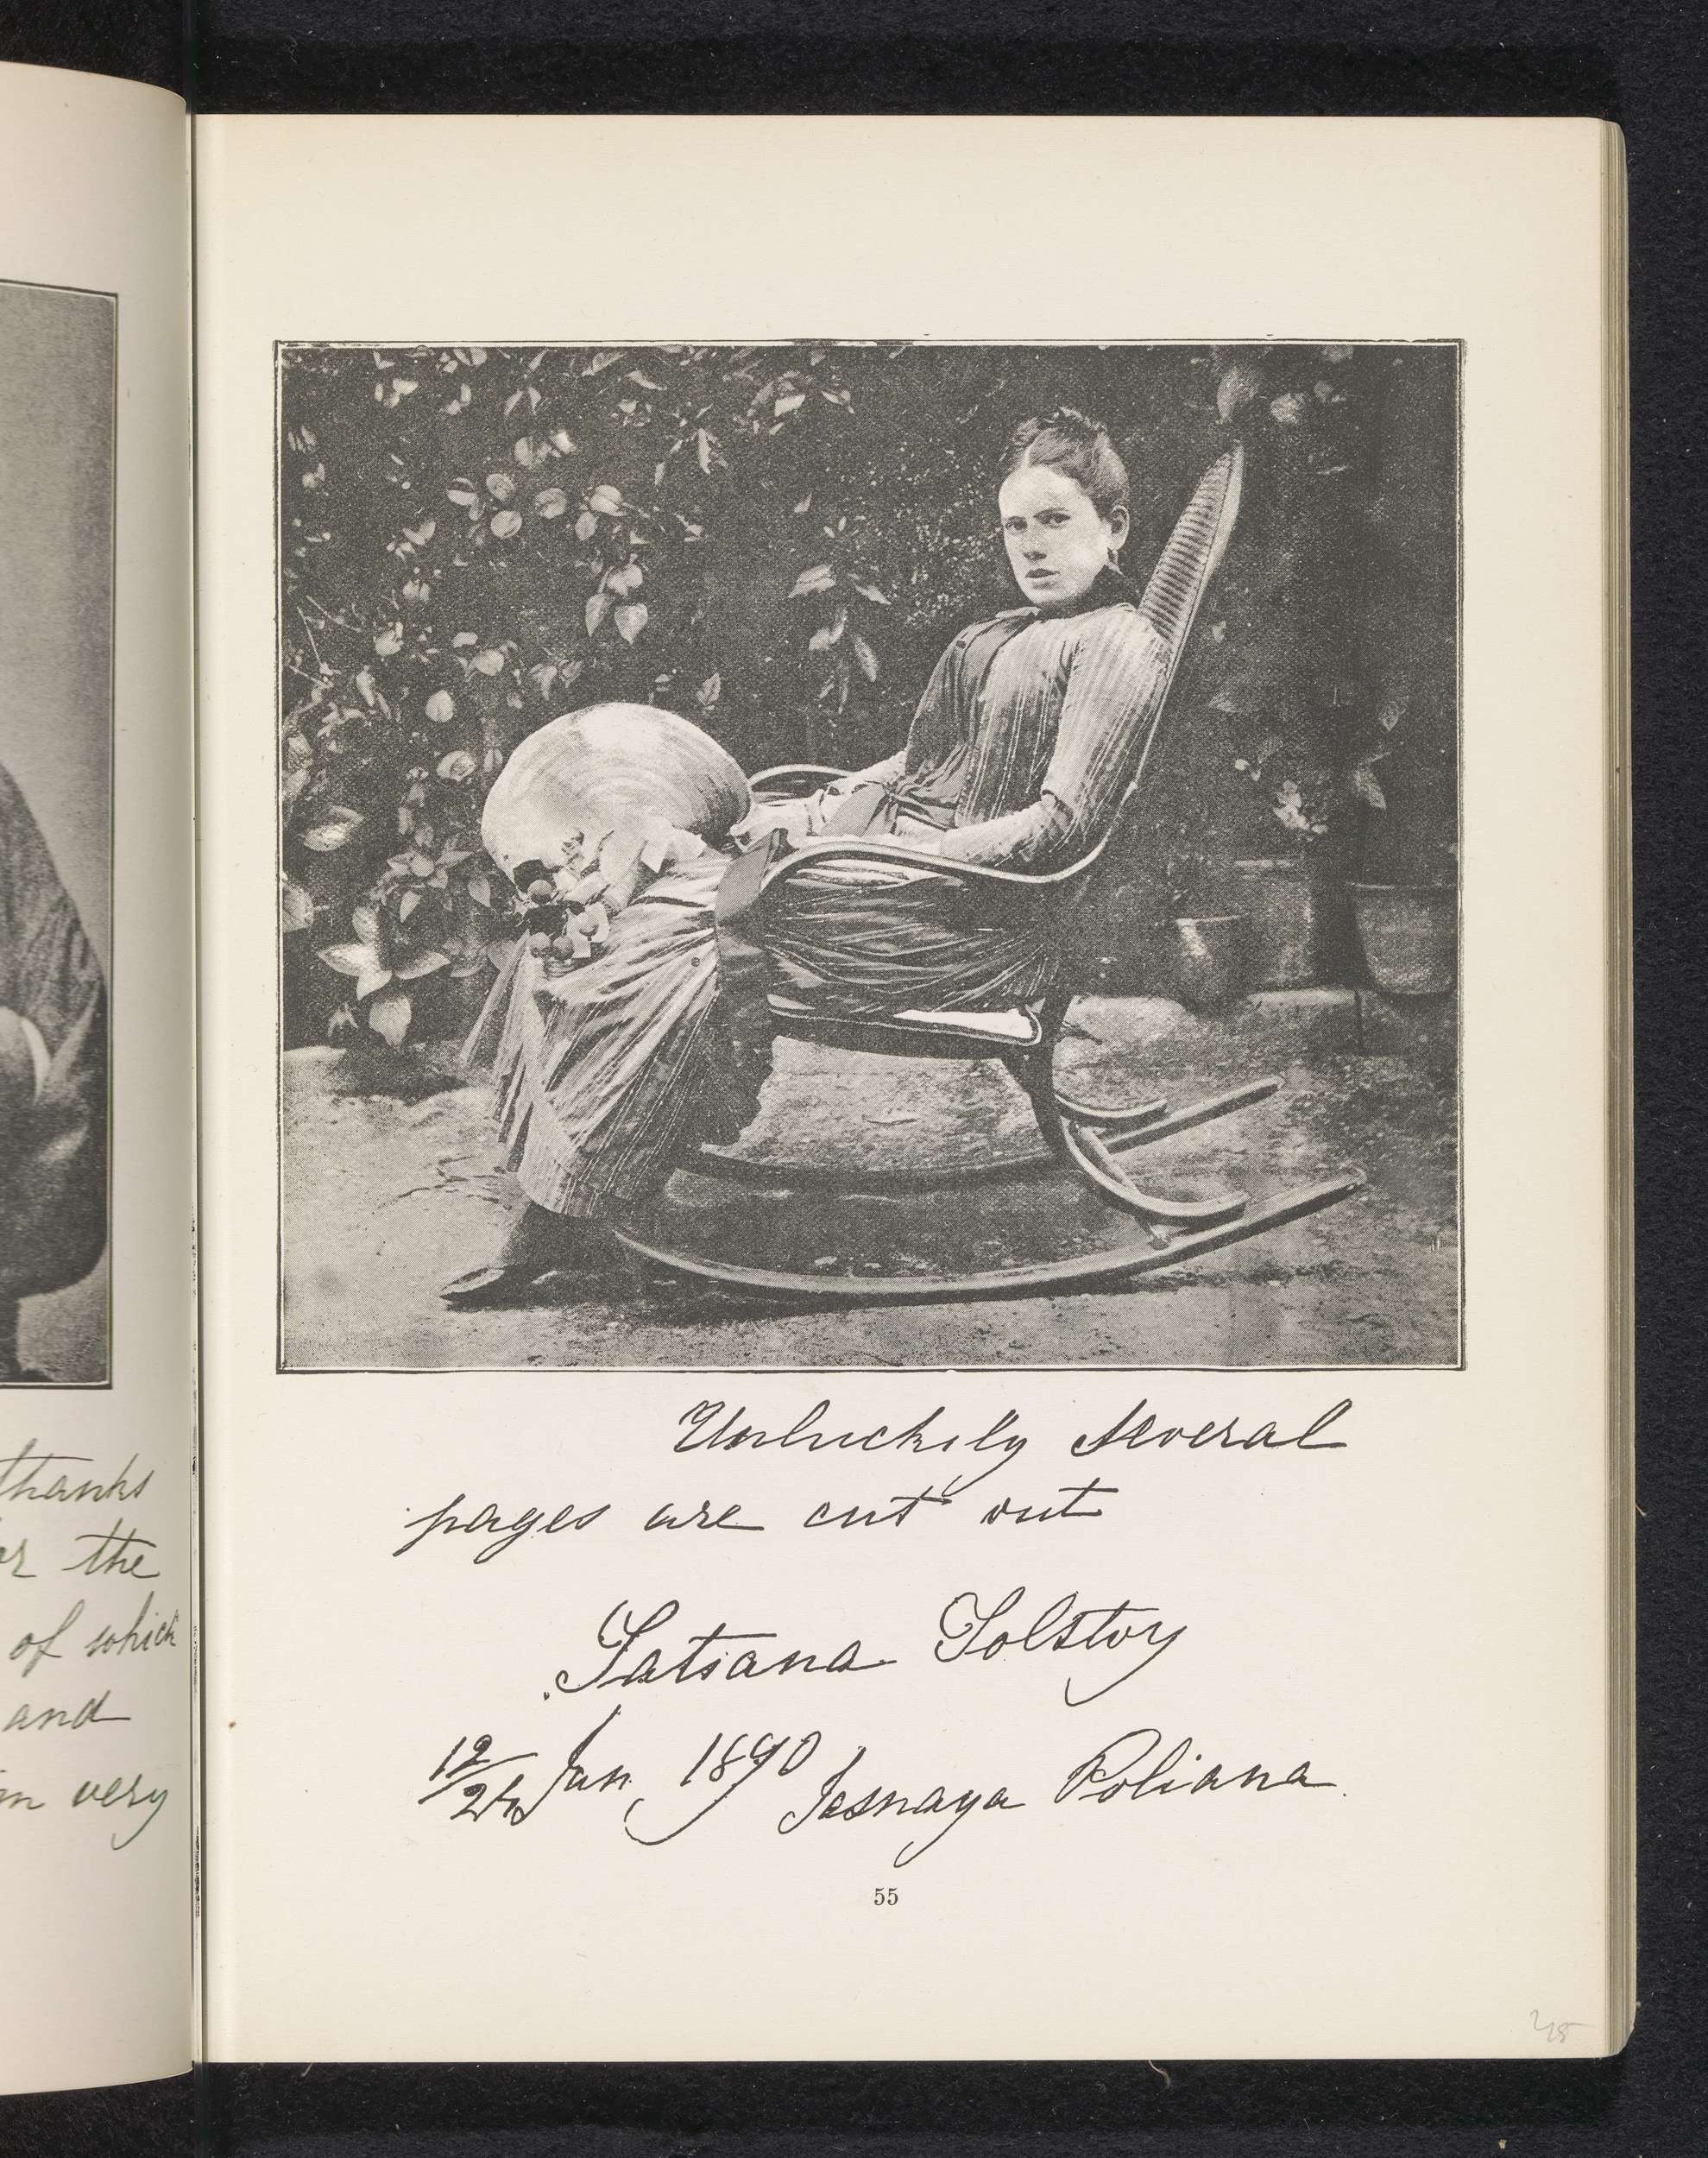 thanks
the
of which
and
very
Unluckily several
pages are cut out
Tatiana Tolstoy
12/24 Jan, 1890 Jasnaya Poliana.
55